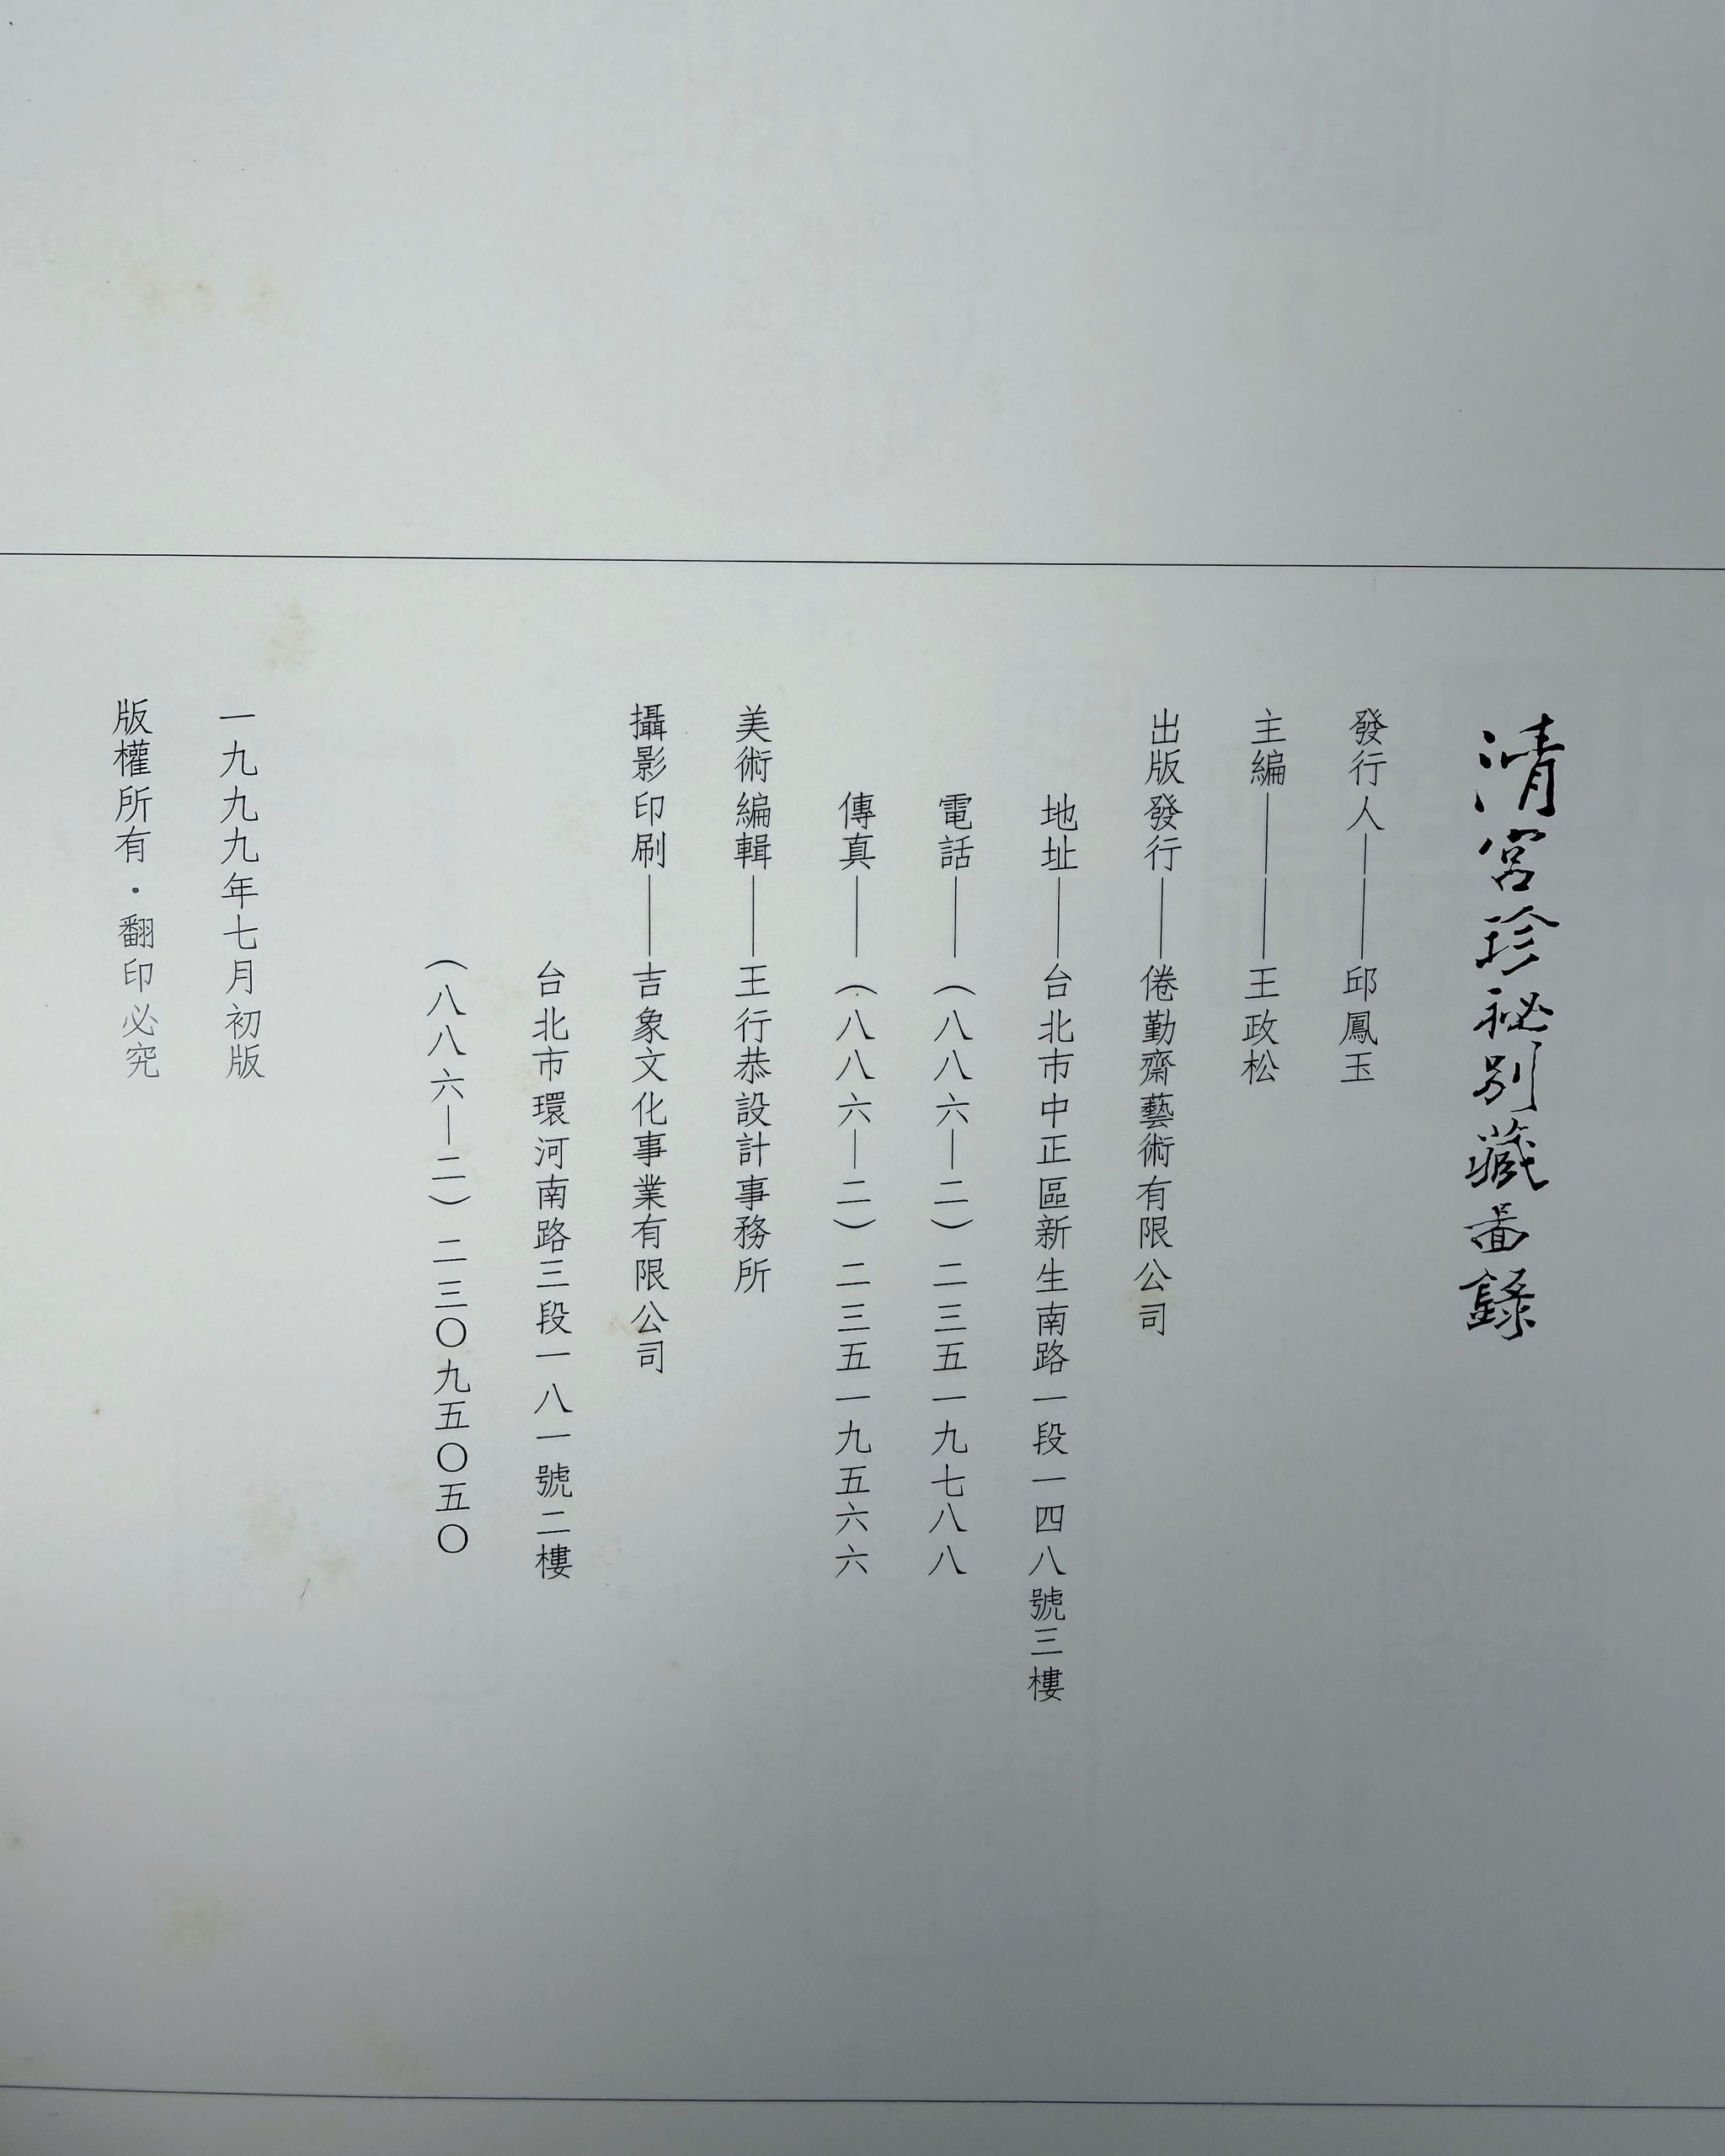 清宮珍祕別藏啚錄
發行人——邱鳳玉
主編——王政松
出版發行——倦勤齋藝術有限公司
地址——台北市中正區新生南路一段一四八號三樓
電話——（八八六—二）二三五一九七八八
傳真——（八八六—二）二三五一九五六六
美術編輯——王行恭設計事務所
攝影印刷——吉象文化事業有限公司
台北市環河南路三段一八一號二樓
（八八六—二）二三〇九五〇五〇
一九九九年七月初版
版權所有・翻印必究